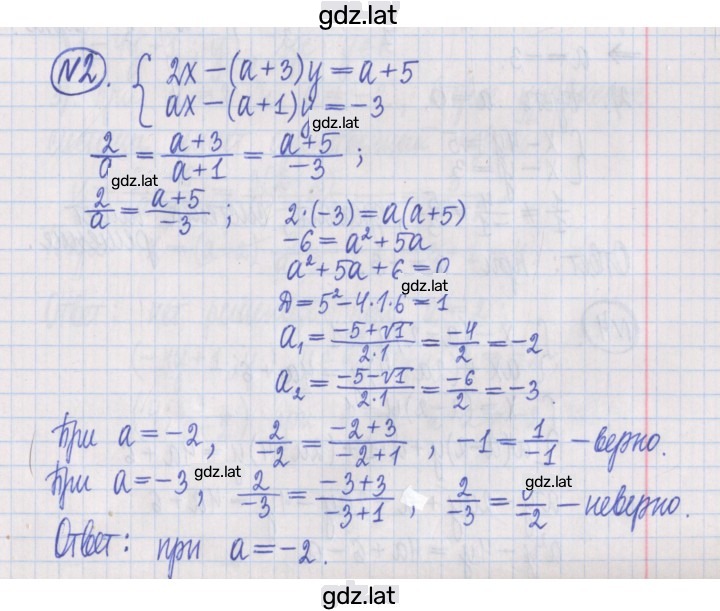 gdz.lat
№2. { 2x − (a+3)y = a+5
ax − (a+1)y = −3
gdz.lat
2/a = (a+3)/(a+1) = (a+5)/−3 ;
gdz.lat
2/a = (a+5)/−3 ; 2·(−3) = a(a+5)
−6 = a² + 5a
a² + 5a + 6 = 0
gdz.lat
Д = 5² − 4·1·6 = 1
a₁ = (−5+√1)/(2·1) = −4/2 = −2
a₂ = (−5−√1)/(2·1) = −6/2 = −3.
При a = −2, 2/−2 = (−2+3)/(−2+1), −1 = 1/−1 − верно.
gdz.lat
При a = −3, 2/−3 = (−3+3)/(−3+1), 2/−3 = /−2 − неверно.
gdz.lat
Ответ: при a = −2.
gdz.lat